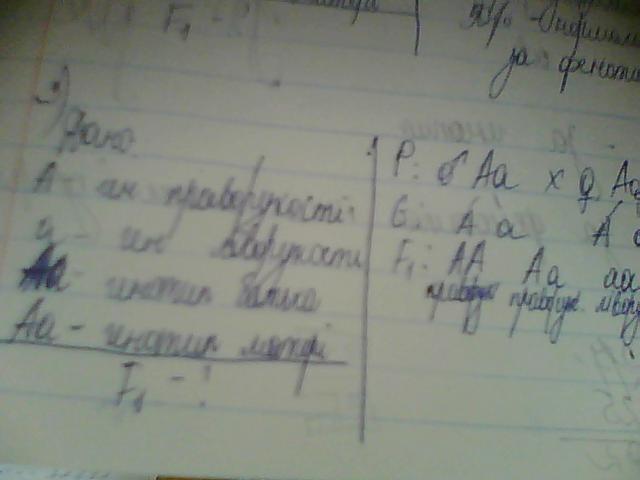 F₁ - ?
50% -
за фенотип
2)
Дано:
А - ген праворукості
а - ген ліворукості
Аа - генотип батька
Аа - генотип матері
F₁ - ?
P: ♂ Аа × ♀ Аа
G: А а А а
F₁: АА Аа аа
праворук. праворук. лівору